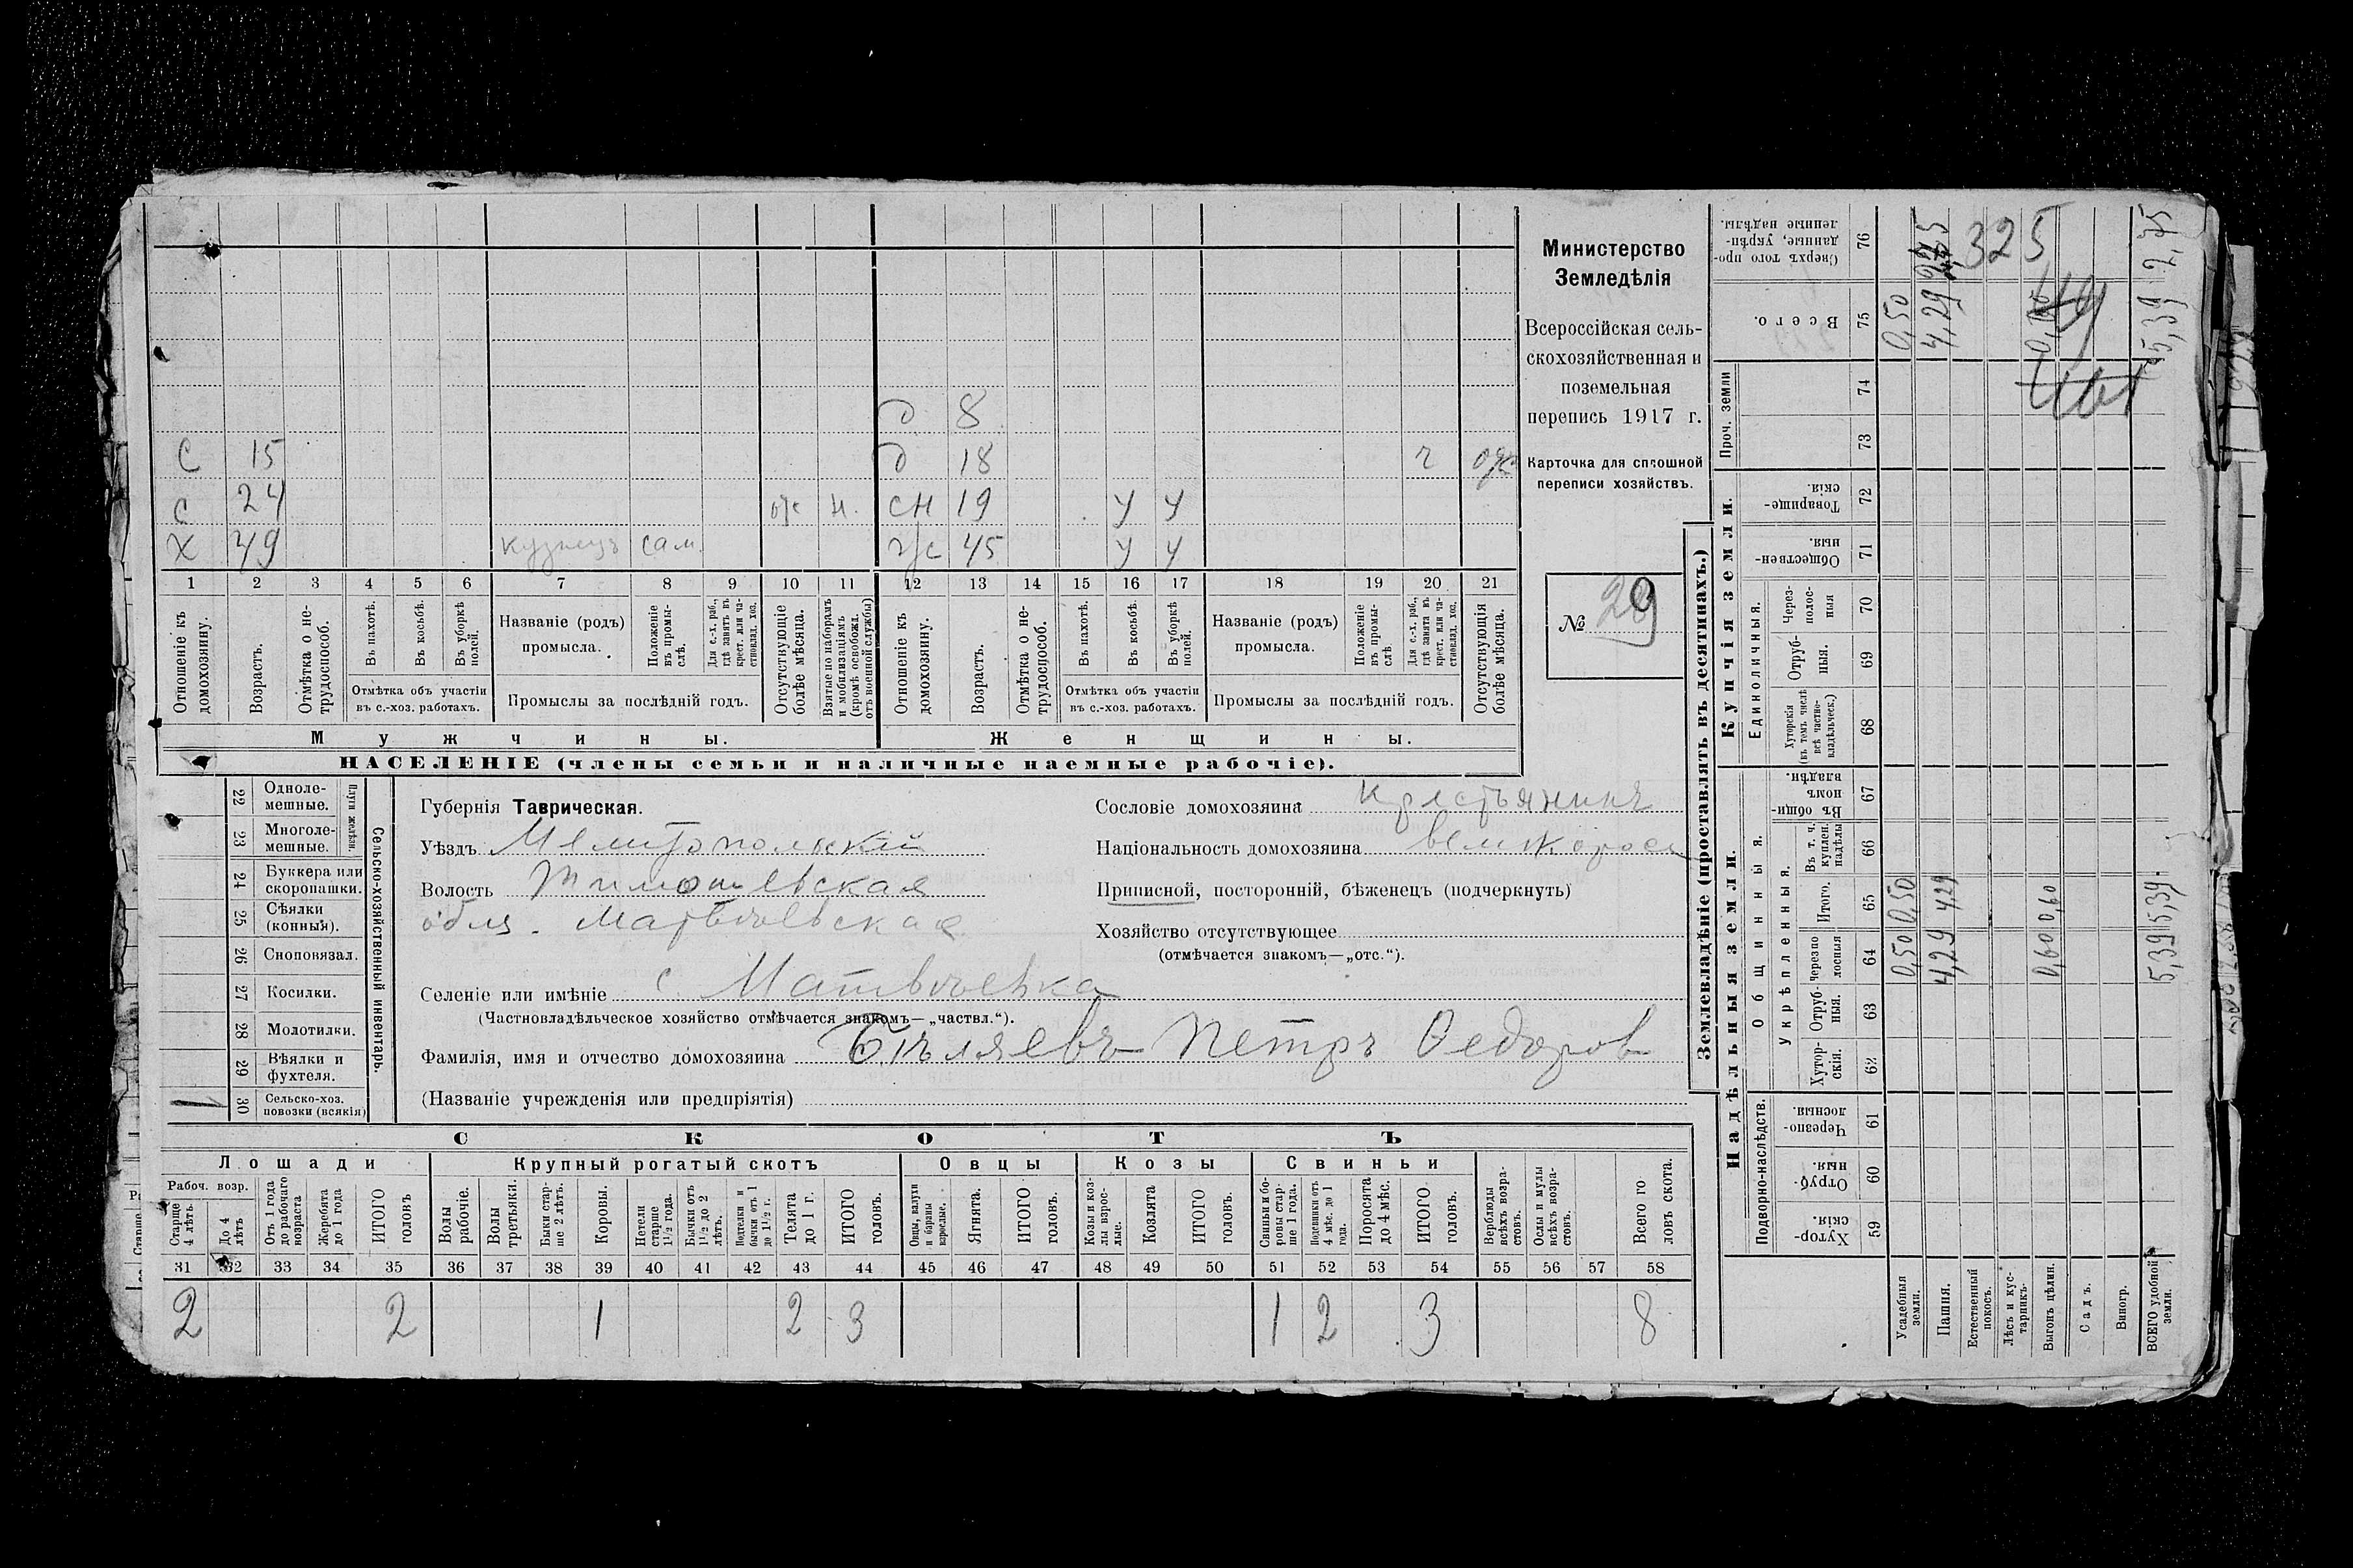 Министерство
Земледѣлія
Всероссійская сель-
скохозяйственная и
поземельная
перепись 1917 г.
Карточка для сплошной
переписи хозяйствъ.
№ 29
д 8
С 15 д 18 ч
С 24 Н. СН 19 У У
Х 49 кузнецъ сам. ж 45 У У
1 2 3 4 5 6 7 8 9 10 11 12 13 14 15 16 17 18 19 20 21
Отношеніе къ домохозяину.
Возрастъ.
Отмѣтка о не-трудоспособ.
Въ пахотѣ.
Въ косьбѣ.
Въ уборкѣ полей.
Отмѣтка объ участіи
въ с.-хоз. работахъ.
Названіе (родъ)
промысла.
Положеніе въ промы-слѣ.
Для с.-х. раб., гдѣ занятъ въ крест. или ча-стновлад. хоз.
Промыслы за послѣдній годъ.
Отсутствующіе болѣе мѣсяца.
Взятые по наборамъ и мобилизаціямъ (кромѣ освобожд. отъ военной службы)
Отношеніе къ домохозяину.
Возрастъ.
Отмѣтка о не-трудоспособ.
Въ пахотѣ.
Въ косьбѣ.
Въ уборкѣ полей.
Отмѣтка объ участіи
въ с.-хоз. работахъ.
Названіе (родъ)
промысла.
Положеніе въ промы-слѣ
Для с.-х. раб., гдѣ занята въ крест. или ча-стновлад. хоз.
Промыслы за послѣдній годъ.
Отсутствующія болѣе мѣсяца.
Мужчины. Женщины.
НАСЕЛЕНІЕ (члены семьи и наличные наемные рабочіе).
22 Одноле-мешные.
23 Многоле-мешные.
Плуги желѣзн.
24 Буккера или скоропашки.
25 Сѣялки (конныя).
26 Сноповязал.
27 Косилки.
28 Молотилки.
29 Вѣялки и фухтеля.
1 30 Сельско-хоз. повозки (всякія)
Сельско-хозяйственный инвентарь.
Губернія Таврическая.
Уѣздъ Мелитопольскій
Волость Тимошевская
общ. Матвѣевская
Селеніе или имѣніе с. Матвѣевка
(Частновладѣльческое хозяйство отмѣчается знакомъ—„частвл.“).
Фамилія, имя и отчество домохозяина Бѣляевъ Петръ Федоров
(Названіе учрежденія или предпріятія)
Сословіе домохозяина крестьянинъ
Національность домохозяина великоросс
Приписной, посторонній, бѣженецъ (подчеркнуть)
Хозяйство отсутствующее
(отмѣчается знакомъ—„отс.“).
СКОТЪ
Лошади Крупный рогатый скотъ Овцы Козы Свиньи
Рабоч. возр.
Старше 4 лѣтъ.
До 4 лѣтъ
Отъ 1 года до рабочаго возраста
Жеребята до 1 года
ИТОГО головъ
Волы рабочіе.
Волы третьяки.
Быки стар-ше 2 лѣтъ.
Коровы.
Нетели старше 1½ года.
Бычки отъ 1½ до 2 лѣтъ.
Подтелки и бычки отъ 1 до 1½ г.
Телята до 1 г.
ИТОГО головъ.
Овцы, валухи и бараны взрослые.
Ягнята.
ИТОГО головъ.
Козы и коз-лы взрос-лые.
Козлята
ИТОГО головъ.
Свиньи и бо-ровы стар-ше 1 года.
Подсвинки отъ 4 мѣс. до 1 года.
Поросята до 4 мѣс.
ИТОГО головъ.
Верблюды всѣхъ возра-стовъ.
Ослы и мулы всѣхъ возра-стовъ.
Всего го ловъ скота.
31 32 33 34 35 36 37 38 39 40 41 42 43 44 45 46 47 48 49 50 51 52 53 54 55 56 57 58
2 2 1 2 3 1 2 3 8
Землевладѣніе (проставлять въ десятинахъ.)
Надѣльныя земли. Купчія земли.
Подворно-наслѣдств.
Общинныя.
Укрѣпленныя.
Единоличныя.
Проч. земли
Сверхъ того про-данные, укрѣп-ленные надѣлы. 76
Всего. 75
74
73
Товарище-скія. 72
Обществен-ныя. 71
Через-полос-ныя 70
Отруб-ныя. 69
Хуторскія (въ томъ числѣ всѣ частно-владѣльческ.) 68
Въ общин-номъ владѣн. 67
Въ т. ч. куплен. надѣлы 66
Итого. 65
Черезпо лосныя 64
Отруб-ныя. 63
Хутор-скія. 62
Черезпо-лосныя. 61
Отруб-ныя. 60
Хутор-скія. 59
Усадебныя земли. 0,50 0,50 0,50
Пашня. 4,29 4,29 4,29
Естественный покосъ.
Лѣсъ и кус-тарникъ.
Выгонъ цѣлин. 0,60 0,60
Садъ.
Виногр.
ВСЕГО удобной земли. 5,39 5,39 5,39 2,75
325